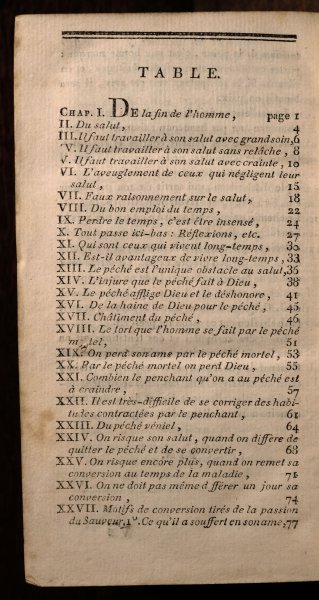 TABLE.
CHAP. I. DE la fin de l'homme, page 1
II. Du salut, 4
III. Il faut travailler à son salut avec grand soin, 6
V. Il faut travailler à son salut sans relâche, 8
V. Il faut travailler à son salut avec crainte, 10
VI. L'aveuglement de ceux qui négligent leur
salut, 15
VII. Faux raisonnement sur le salut, 18
VIII. Du bon emploi du temps, 22
IX. Perdre le temps, c'est être insensé, 24
X. Tout passe ici-bas : Réflexions, etc. 27
XI. Qui sont ceux qui vivent long-temps, 30
XII. Est-il avantageux de vivre long-temps, 33
XIII. Le péché est l'unique obstacle au salut, 36
XIV. L'injure que le péché fait à Dieu, 38
XV. Le péché afflige Dieu et le déshonore, 41
XVI. De la haine de Dieu pour le péché, 45
XVII. Châtiment du péché, 46
XVIII. Le tort que l'homme se fait par le péché
mortel, 51
XIX. On perd son ame par le péché mortel, 53
XX. Par le péché mortel on perd Dieu, 55
XXI. Combien le penchant qu'on a au péché est
à craindre, 57
XXII. Il est très-difficile de se corriger des habi-
tudes contractées par le penchant, 61
XXIII. Du péché véniel, 64
XXIV. On risque son salut, quand on diffère de
quitter le péché et de se convertir, 68
XXV. On risque encore plus, quand on remet sa
conversion au temps de la maladie, 71
XXVI. On ne doit pas même d fférer un jour sa
conversion, 74
XXVII. Motifs de conversion tirés de la passion
du Sauveur, 1°. Ce qu'il a souffert en son ame, 77